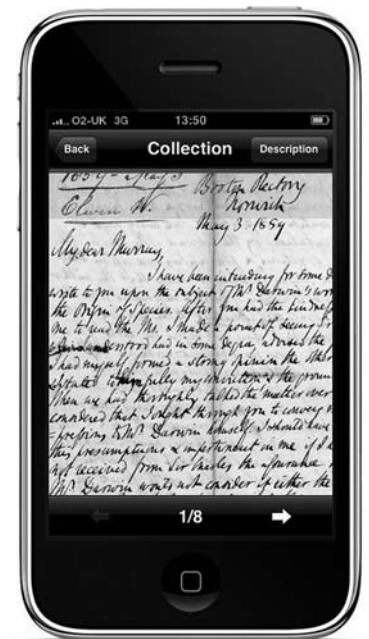 O2-UK 3G 13:50
Back Collection Description
1859 - May 3
Elwin W.
Booton Rectory
Norwich
May 3 - 1859
My dear Murray,
I have been intending for some d
write to you upon the subject of Mr Darwin's wor
the Origin of Species. After you had the kindnes
me to read the Ms. I made a point of seeing Sir
understood had in some degree advised the
I had myself formed a strong opinion the other
stated fully my convictions & the groun
When we had thoroughly talked the matter over
considered that I ought through you to convey
=pressions to Mr Darwin himself. I should have
this presumptuous & impertinent in me if I h
not received from Sir Charles the assurance
Mr Darwin would not consider if either the
1/8